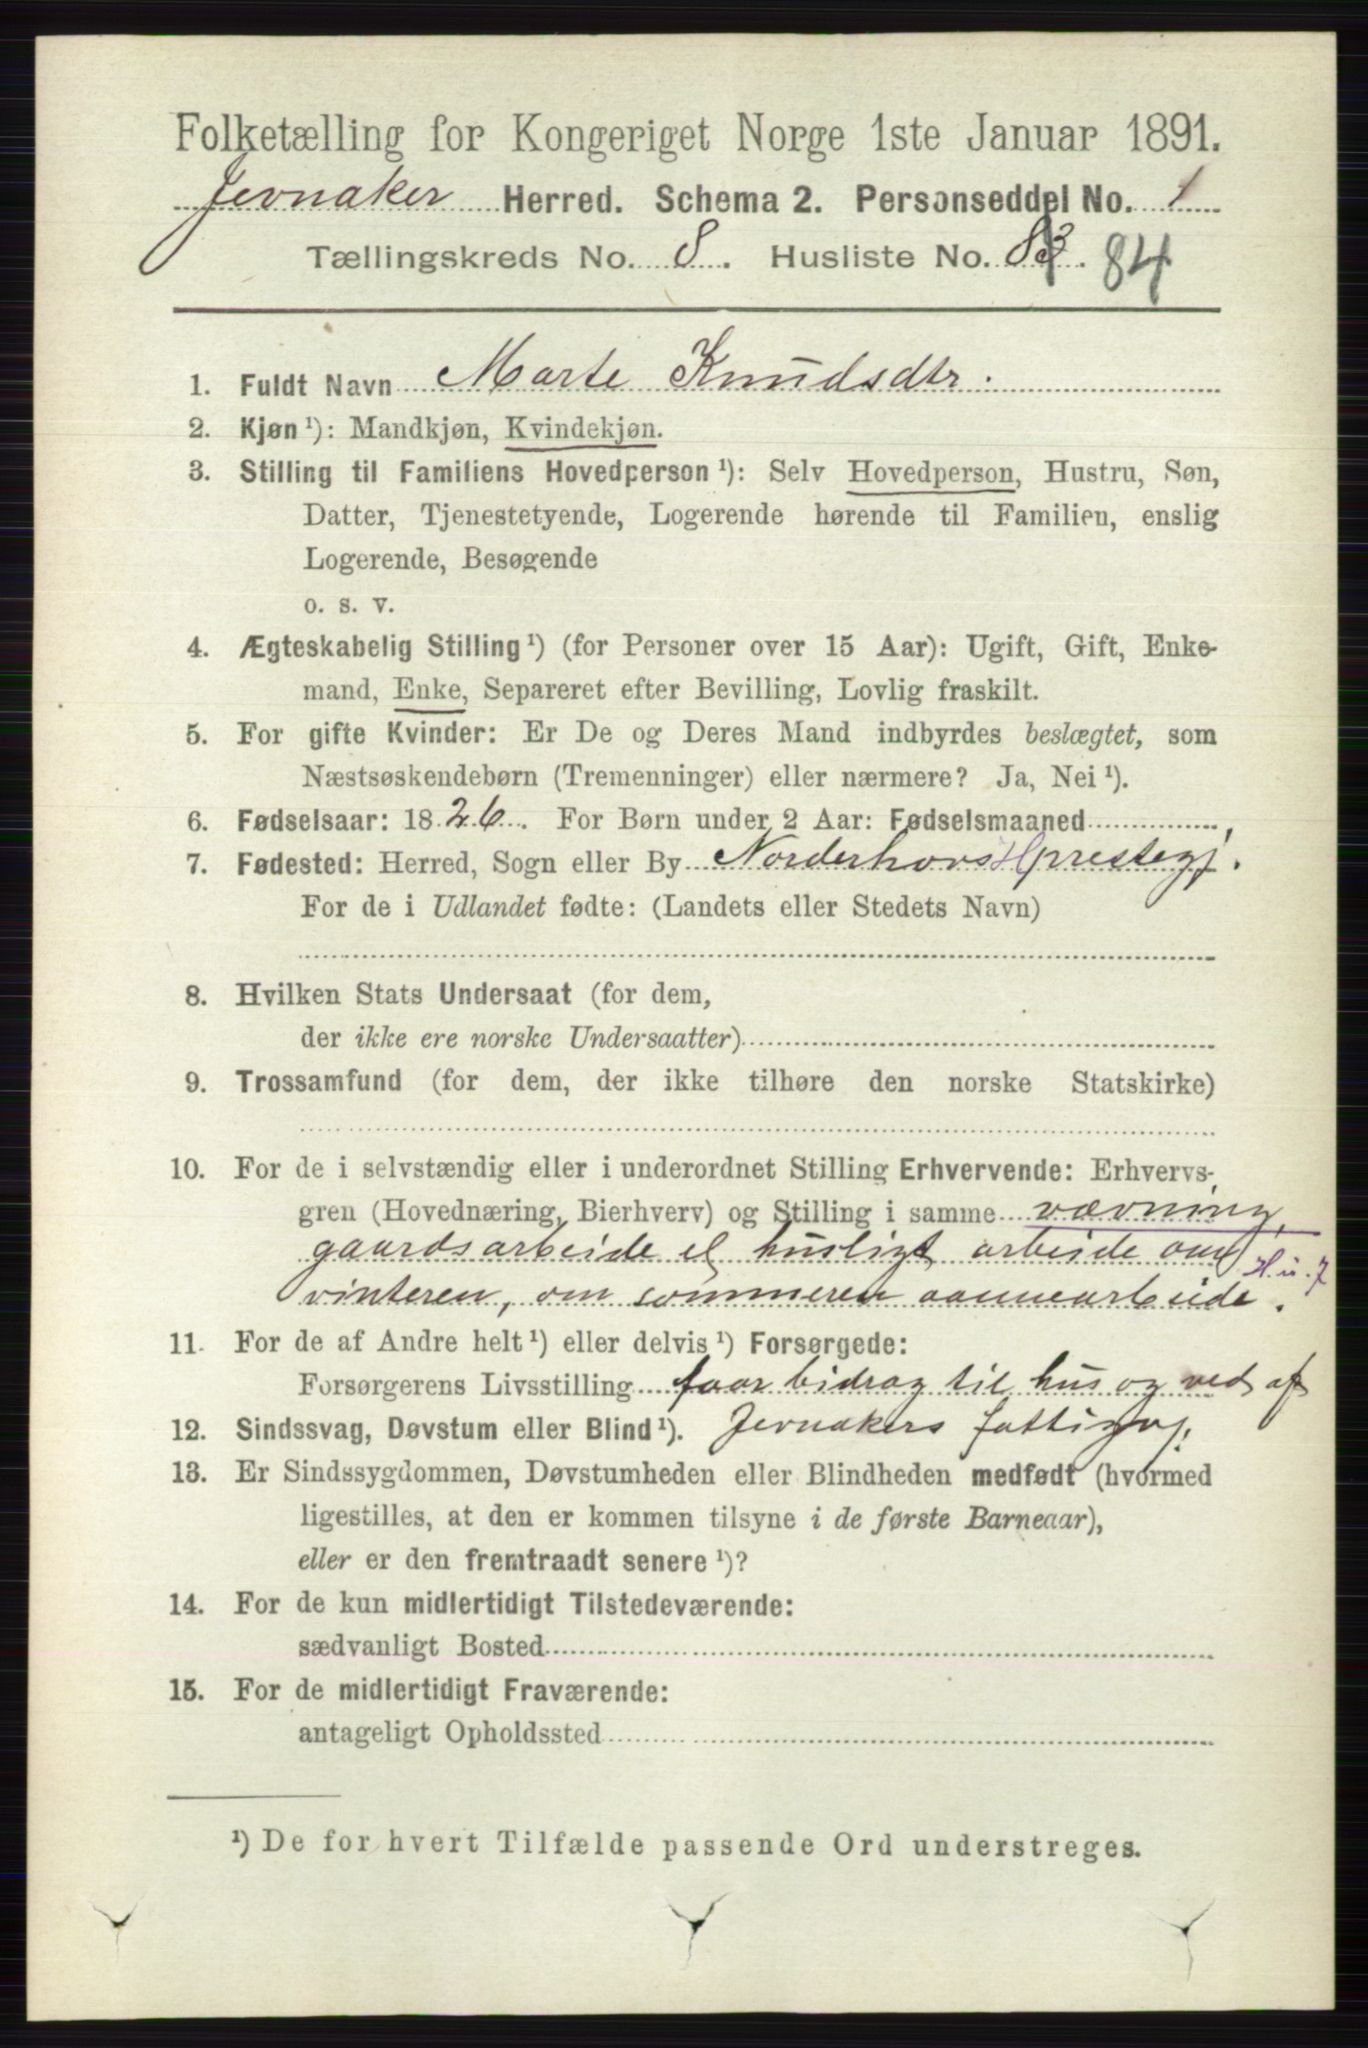 Folketælling for Kongeriget Norge 1ste Januar 1891.
Jevnaker Herred. Schema 2. Personseddel No. 1
Tællingskreds No. 8. Husliste No. 83. 84
1. Fuldt Navn Marte Knudsdtr.
2. Kjøn ¹): Mandkjøn, Kvindekjøn.
3. Stilling til Familiens Hovedperson ¹): Selv Hovedperson, Hustru, Søn,
Datter, Tjenestetyende, Logerende hørende til Familien, enslig
Logerende, Besøgende
o. s. v.
4. Ægteskabelig Stilling ¹) (for Personer over 15 Aar): Ugift, Gift, Enke-
mand, Enke, Separeret efter Bevilling, Lovlig fraskilt.
5. For gifte Kvinder: Er De og Deres Mand indbyrdes beslægtet, som
Næstsøskendebørn (Tremenninger) eller nærmere? Ja, Nei ¹).
6. Fødselsaar: 1826. For Børn under 2 Aar: Fødselsmaaned
7. Fødested: Herred, Sogn eller By Norderhovs prestegj.
For de i Udlandet fødte: (Landets eller Stedets Navn)
8. Hvilken Stats Undersaat (for dem,
der ikke ere norske Undersaatter)
9. Trossamfund (for dem, der ikke tilhøre den norske Statskirke)
10. For de i selvstændig eller i underordnet Stilling Erhvervende: Erhvervs-
gren (Hovednæring, Bierhverv) og Stilling i samme vævning,
gaardsarbeide el husligt arbeide om
vinteren, om sommeren aannearbeide. H.u.7
11. For de af Andre helt ¹) eller delvis ¹) Forsørgede:
Forsørgerens Livsstilling faar bidrag til hus og ved af
12. Sindssvag, Døvstum eller Blind ¹). Jevnakers fattigv.
13. Er Sindssygdommen, Døvstumheden eller Blindheden medfødt (hvormed
ligestilles, at den er kommen tilsyne i de første Barneaar),
eller er den fremtraadt senere ¹)?
14. For de kun midlertidigt Tilstedeværende:
sædvanligt Bosted
15. For de midlertidigt Fraværende:
antageligt Opholdssted
¹) De for hvert Tilfælde passende Ord understreges.